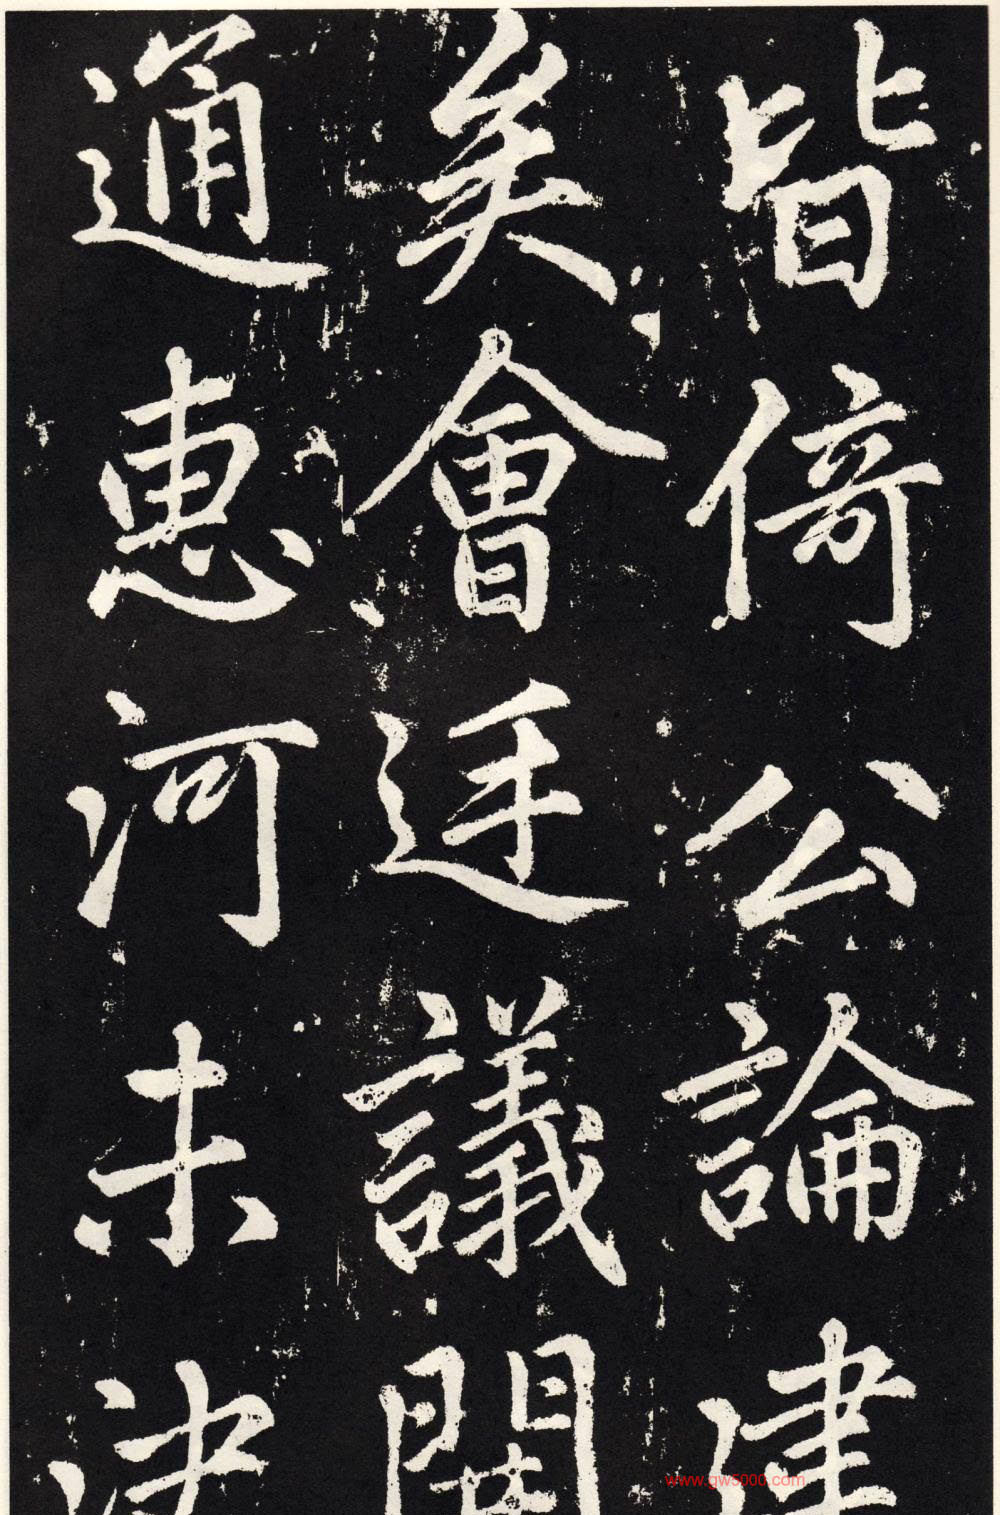 皆倚公論建
矣會廷議開
通惠河未決
www.gw5000.com